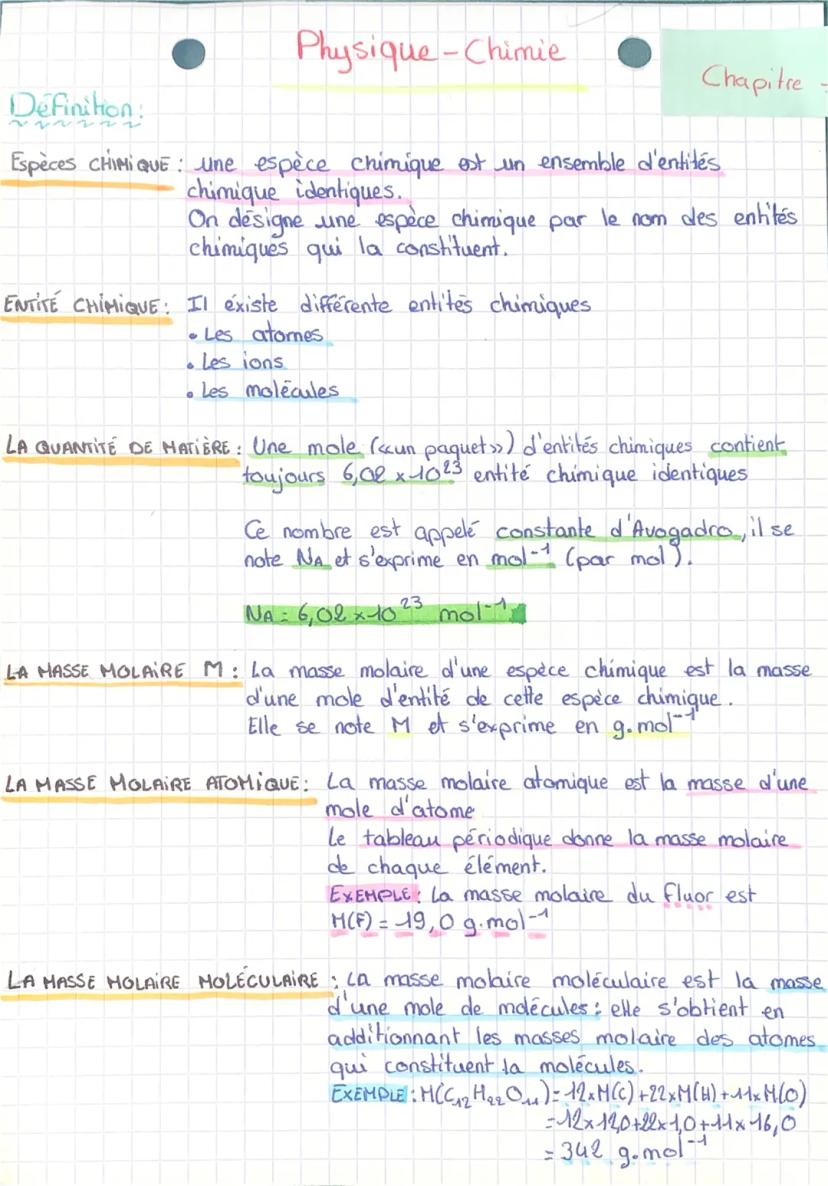 Physique-Chimie
Chapitre
Définition:
Espèces CHIMIQUE : une espèce chimique est un ensemble d'entités
chimique identiques.
On désigne une espèce chimique par le nom des entités
chimiques qui la constituent.
ENTITÉ CHIMIQUE : Il éxiste différente entités chimiques
• Les atomes
• Les ions
• Les molécules
LA QUANTITÉ DE MATIÈRE : Une mole (««un paquet»») d'entités chimiques contient
toujours 6,02 × 10²³ entité chimique identiques
Ce nombre est appelé constante d'Avogadro, il se
note NA et s'exprime en mol⁻¹ (par mol).
NA = 6,02 × 10²³ mol⁻¹
LA MASSE MOLAIRE M : La masse molaire d'une espèce chimique est la masse
d'une mole d'entité de cette espèce chimique.
Elle se note M et s'exprime en g.mol⁻¹
LA MASSE MOLAIRE ATOMIQUE : La masse molaire atomique est la masse d'une
mole d'atome
Le tableau périodique donne la masse molaire
de chaque élément.
EXEMPLE : La masse molaire du fluor est
M(F) = 19,0 g.mol⁻¹
LA MASSE MOLAIRE MOLÉCULAIRE : La masse molaire moléculaire est la masse
d'une mole de molécules : elle s'obtient en
additionnant les masses molaire des atomes
qui constituent la molécules.
EXEMPLE : M(C₁₂H₂₂O₁₁) = 12×M(C) + 22×M(H) + 11×M(O)
= 12×12,0+22×1,0+11×16,0
= 342 g.mol⁻¹